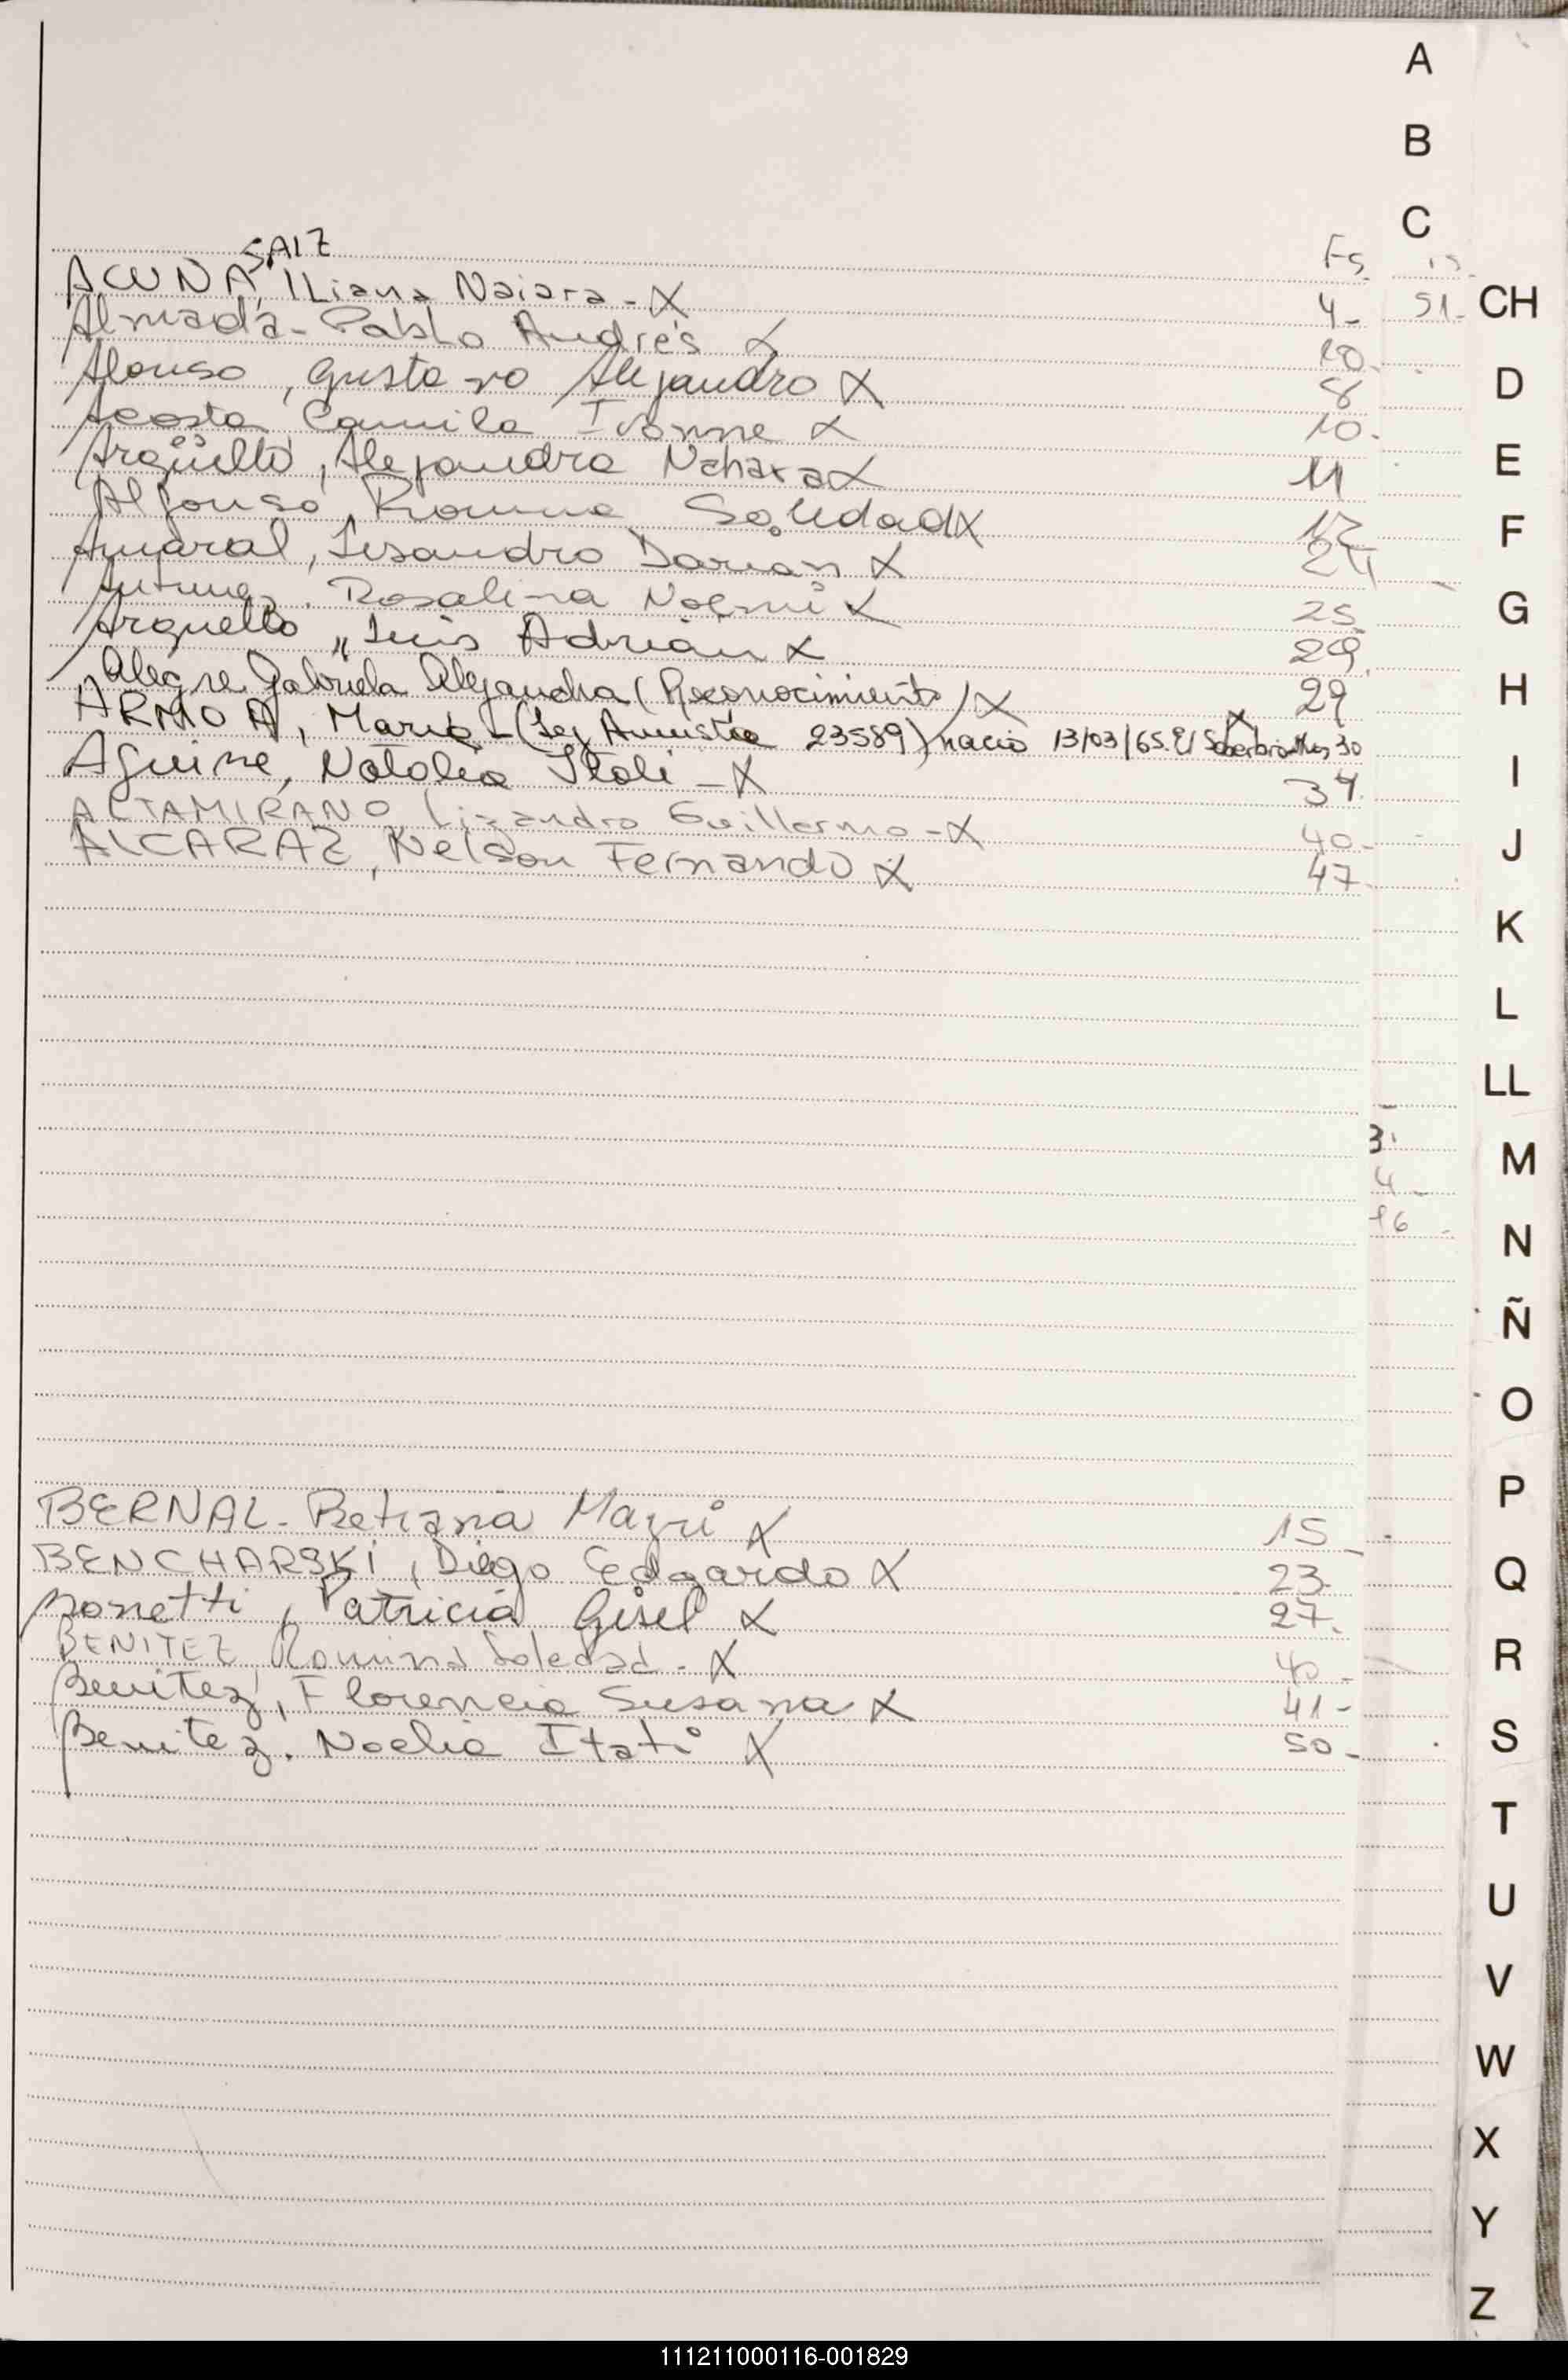 A
B
C
Fs
SAIZ
ACUÑA, ILiana Naiara - X 4-
51-
CH
Almada - Pablo Andrés X 10.
Alonso, Gustavo Alejandro X 8
D
Acosta Camila Ivonne X 10.
Argüello, Alejandra Nahara X 11
E
Alfonso, Romina Soledad X 12
F
Amaral, Lisandro Darian X 24
Antunez. Rosalina Noemi X 25
G
Arguello, Luis Adrián X 29.
Alegre Gabriela Alejandra (Reconocimiento) X 29
H
ARMOA, Mario - (Ley Amnistia 23589) nació 13/03/65. El Soberbio Mnes X 30
Aguirre, Natalia Itati - X 34.
I
ALTAMIRANO Lizandro Guillermo - X 40-
J
ALCARAZ, Nelson Fernando X 47-
K
L
LL
3.
M
4-
16
N
Ñ
O
P
BERNAL - Betiana Mayri X 15-
BENCHARSKI, Diego Edgardo X 23.
Q
Bonetti, Patricia Gisel X 27.
BENITEZ, Romina Soledad - X 40-
R
Benitez, Florencia Susana X 41-
Benitez. Noelia Itati X 50-
S
T
U
V
W
X
Y
Z
111211000116-001829